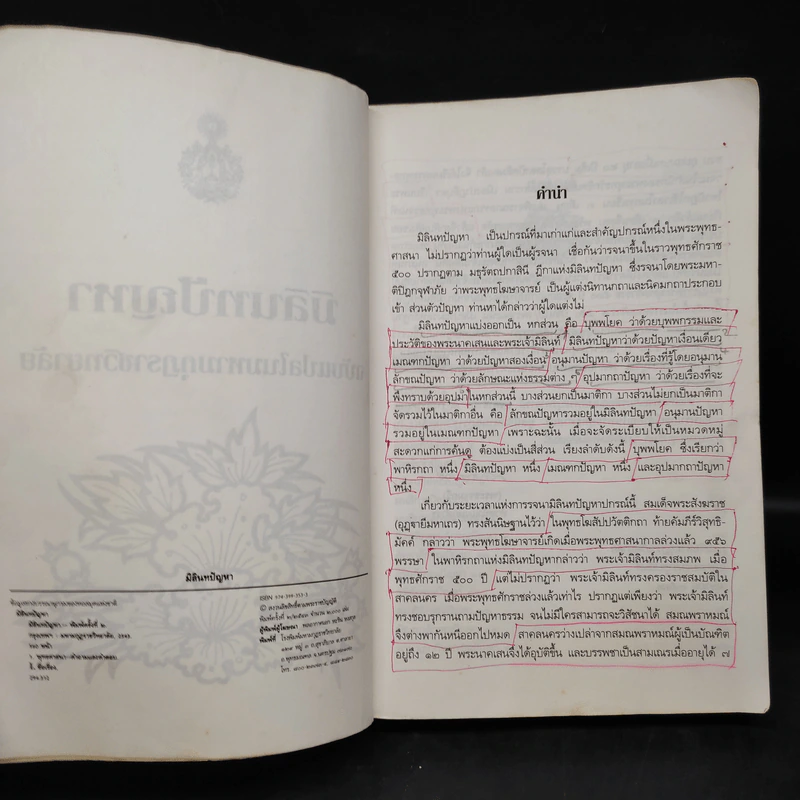 มิลินทปัญหา
ISBN 974-399-353-3
มิลินทปัญหา
294.312
คำนำ
มิลินทปัญหา เป็นปกรณ์ที่มาเก่าแก่และสำคัญปกรณ์หนึ่งในพระพุทธ-
ศาสนา ไม่ปรากฏว่าท่านผู้ใดเป็นผู้รจนา เชื่อกันว่ารจนาขึ้นในราวพุทธศักราช
๕๐๐ ปรากฏตาม มธุรัตถปกาสินี ฎีกาแห่งมิลินทปัญหา ซึ่งรจนาโดยพระมหา-
ติปิฎกจุฬาภัย ว่าพระพุทธโฆษาจารย์ เป็นผู้แต่งนิทานกถาและนิคมกถาประกอบ
เข้า ส่วนตัวปัญหา ท่านหาได้กล่าวว่าผู้ใดแต่งไม่
มิลินทปัญหาแบ่งออกเป็น หกส่วน คือ บุพพโยค ว่าด้วยบุพพกรรมและ
ประวัติของพระนาคเสนและพระเจ้ามิลินท์ มิลินทปัญหาว่าด้วยปัญหาเงื่อนเดียว
เมณฑกปัญหา ว่าด้วยปัญหาสองเงื่อน อนุมานปัญหา ว่าด้วยเรื่องที่รู้โดยอนุมาน
ลักขณปัญหา ว่าด้วยลักษณะแห่งธรรมต่าง ๆ อุปมากถาปัญหา ว่าด้วยเรื่องที่จะ
พึงทราบด้วยอุปมา ในหกส่วนนี้ บางส่วนยกเป็นมาติกา บางส่วนไม่ยกเป็นมาติกา
จัดรวมไว้ในมาติกาอื่น คือ ลักขณปัญหารวมอยู่ในมิลินทปัญหา อนุมานปัญหา
รวมอยู่ในเมณฑกปัญหา เพราะฉะนั้น เมื่อจะจัดระเบียบให้เป็นหมวดหมู่
สะดวกแก่การค้นดู ต้องแบ่งเป็นสี่ส่วน เรียงลำดับดังนี้ บุพพโยค ซึ่งเรียกว่า
พาหิรกถา หนึ่ง มิลินทปัญหา หนึ่ง เมณฑกปัญหา หนึ่ง และอุปมากถาปัญหา
หนึ่ง
เกี่ยวกับระยะเวลาแห่งการรจนามิลินทปัญหาปกรณ์นี้ สมเด็จพระสังฆราช
(อุฏฐายีมหาเถร) ทรงสันนิษฐานไว้ว่า ในพุทธโฆสัปปวัตติกถา ท้ายคัมภีร์วิสุทธิ-
มัคค์ กล่าวว่า พระพุทธโฆษาจารย์เกิดเมื่อพระพุทธศาสนากาลล่วงแล้ว ๙๕๖
พรรษา ในพาหิรกถาแห่งมิลินทปัญหากล่าวว่า พระเจ้ามิลินท์ทรงสมภพ เมื่อ
พุทธศักราช ๕๐๐ ปี แต่ไม่ปรากฏว่า พระเจ้ามิลินท์ทรงครองราชสมบัติใน
สาคลนคร เมื่อพระพุทธศักราชล่วงแล้วเท่าไร ปรากฏแต่เพียงว่า พระเจ้ามิลินท์
ทรงชอบรุกรานถามปัญหาธรรม จนไม่มีใครสามารถจะวิสัชนาได้ สมณพราหมณ์
จึงต่างพากันหนีออกไปหมด สาคลนครว่างเปล่าจากสมณพราหมณ์ผู้เป็นบัณฑิต
อยู่ถึง ๑๒ ปี พระนาคเสนจึงได้อุบัติขึ้น และบรรพชาเป็นสามเณรเมื่ออายุได้ ๗